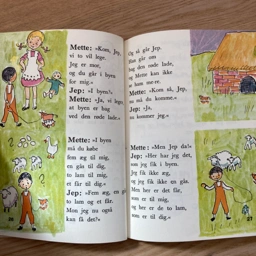 Mette: »Kom, Jep,
vi to vil lege.
Jeg er mor,
og du går i byen
for mig.«
Jep: »I byen?«
Mette: »Ja, vi leger,
at byen er bag
ved den røde lade.
Mette: »I byen
må du købe
fem æg til mig,
en gås til dig,
to lam til mig,
et får til dig.«
Jep: »Fem æg, en gås,
to lam og et får.
Men jeg nu også
kan få det?«
du så går Jep.
Han går om
bag den røde lade,
og Mette kan ikke
se ham mere.
Mette: »Kom så, Jep,
nu må du komme.«
Jep: »Ja,
nu kommer jeg.«
Mette: »Men Jep da!«
Jep: »Her har jeg det,
som jeg fik i byen.
Jeg fik ikke æg,
og jeg fik ikke en gås.
Men her er de to lam,
og her er de to lam,
som er til dig.«